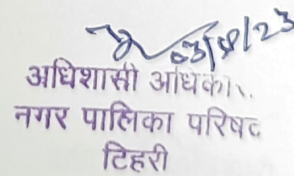 03/08/23
अधिशासी अधिकारी
नगर पालिका परिषद
टिहरी